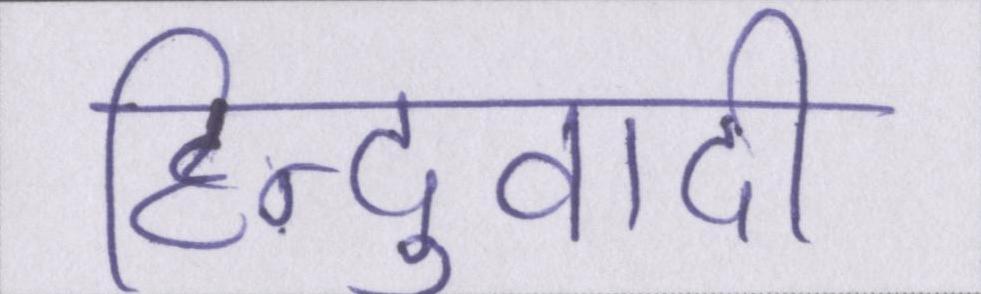 हिन्दुवादी